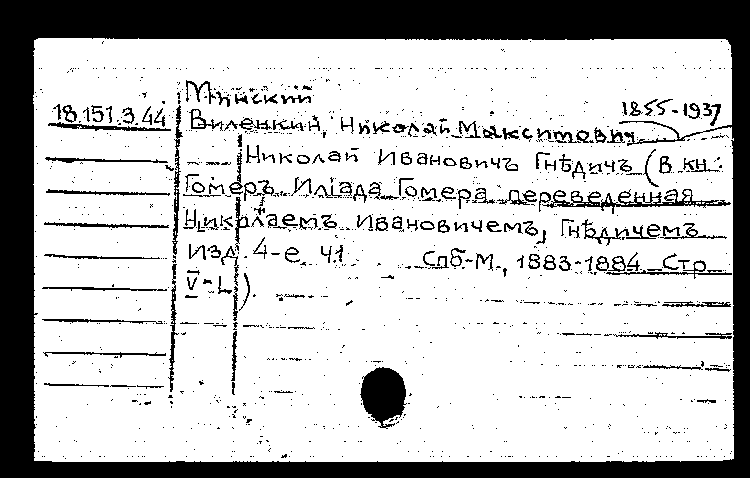 Минский
18.151.3.44
Виленкин, Николай Максимович 1855-1937
Николай Ивановичъ Гнѣдичъ (В кн.:
Гомеръ. Иліада Гомера переведенная
Николаемъ Ивановичемъ, Гнѣдичемъ
Изд. 4-е. Ч1 Спб-М., 1883-1884 Стр
V-L).